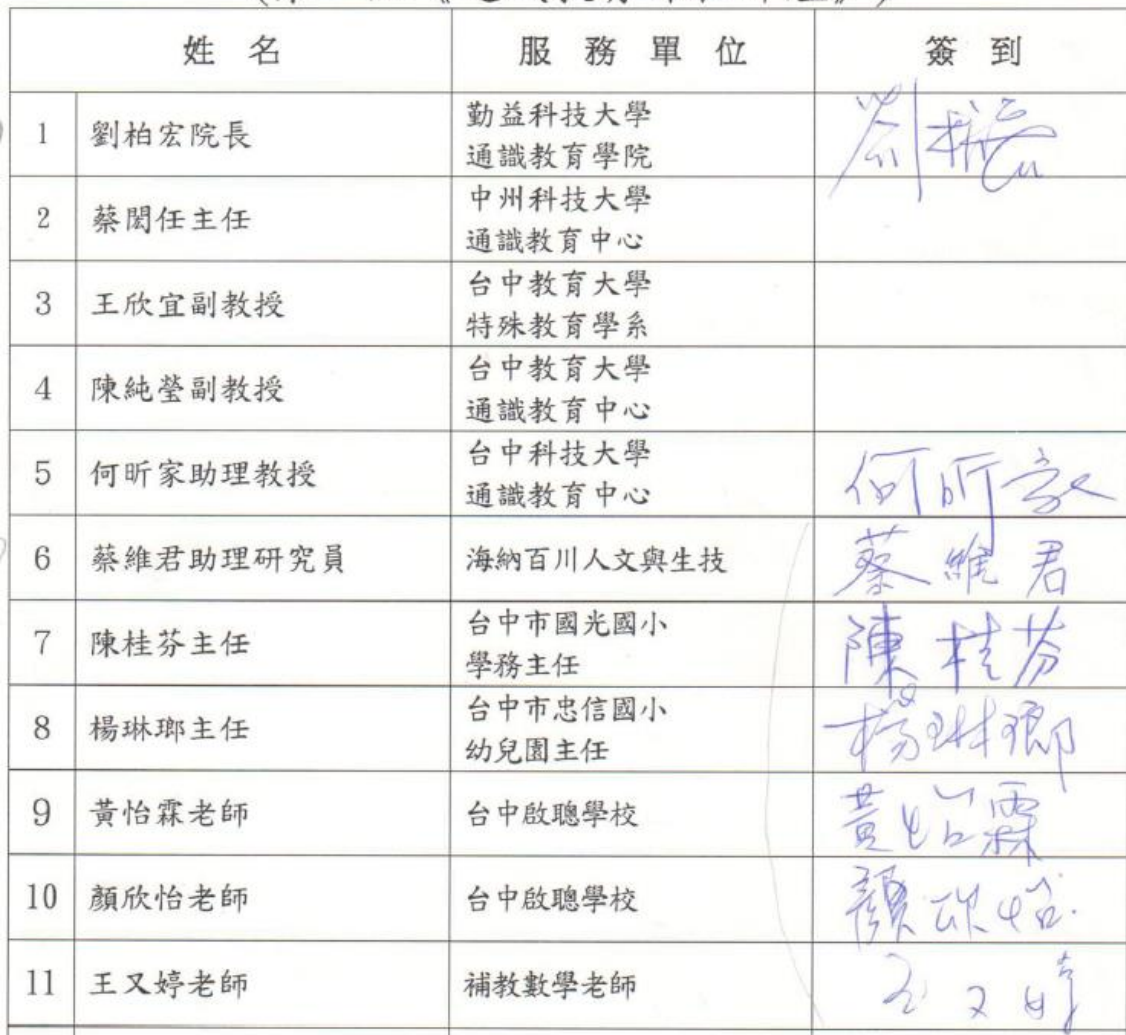 姓 名 服 務 單 位 簽 到
1 劉柏宏院長 勤益科技大學
通識教育學院
劉柏宏
2 蔡閎任主任 中州科技大學
通識教育中心
3 王欣宜副教授 台中教育大學
特殊教育學系
4 陳純瑩副教授 台中教育大學
通識教育中心
5 何昕家助理教授 台中科技大學
通識教育中心
何昕家
6 蔡維君助理研究員 海納百川人文與生技 蔡維君
7 陳桂芬主任 台中市國光國小
學務主任
陳桂芬
8 楊琳瑯主任 台中市忠信國小
幼兒園主任
楊琳瑯
9 黃怡霖老師 台中啟聰學校 黃怡霖
10 顏欣怡老師 台中啟聰學校 顏欣怡
11 王又婷老師 補教數學老師 王又婷